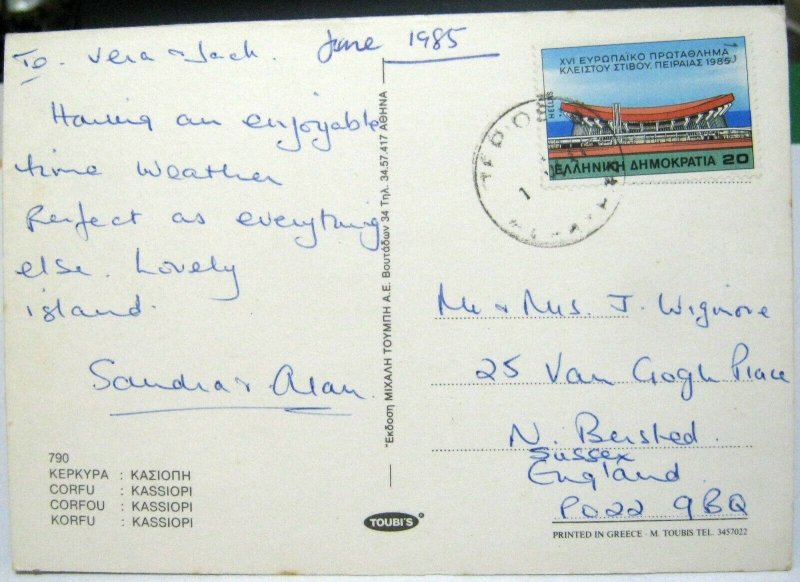 To. Vera & Jack. June 1985
Having an enjoyable
time weather
Perfect as everything
else. Lovely
island.
Sandra & Alan.
790
ΚΕΡΚΥΡΑ : ΚΑΣΙΟΠΗ
CORFU : KASSIOPI
CORFOU : KASSIOPI
KORFU : KASSIOPI
Έκδοση ΜΙΧΑΛΗ ΤΟΥΜΠΗ Α.Ε. Βουτάδων 34 Τηλ. 34.57.417 ΑΘΗΝΑ
TOUBI'S
XVI ΕΥΡΩΠΑΪΚΟ ΠΡΩΤΑΘΛΗΜΑ
ΚΛΕΙΣΤΟΥ ΣΤΙΒΟΥ, ΠΕΙΡΑΙΑΣ 1985
HELLAS
ΕΛΛΗΝΙΚΗ ΔΗΜΟΚΡΑΤΙΑ 20
Mr & Mrs. J. Wigmore
25 Van Gogh Place
N. Bersted.
Sussex
England.
PO22 9BQ
PRINTED IN GREECE - M. TOUBIS TEL. 3457022